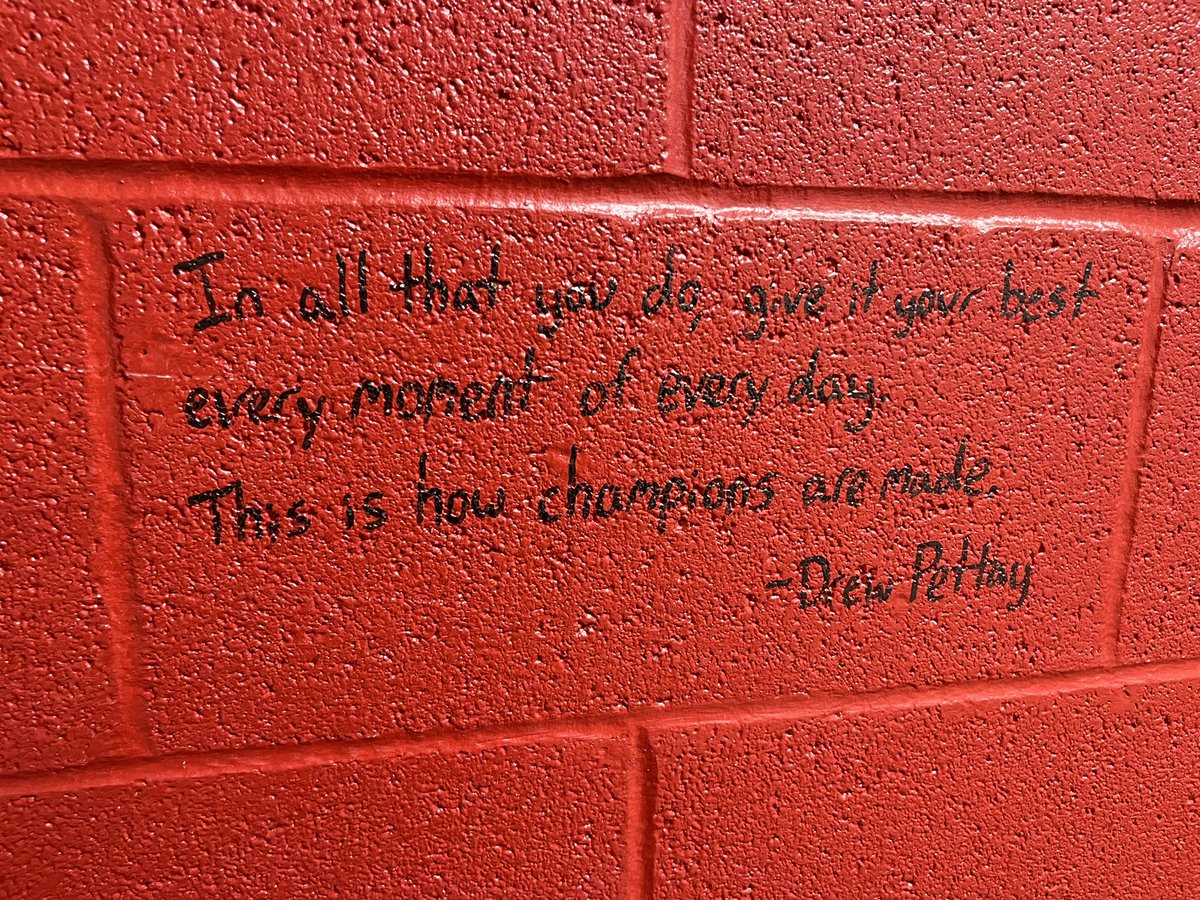 In all that you do, give it your best
every moment of every day.
This is how champions are made.
-Drew Pettay